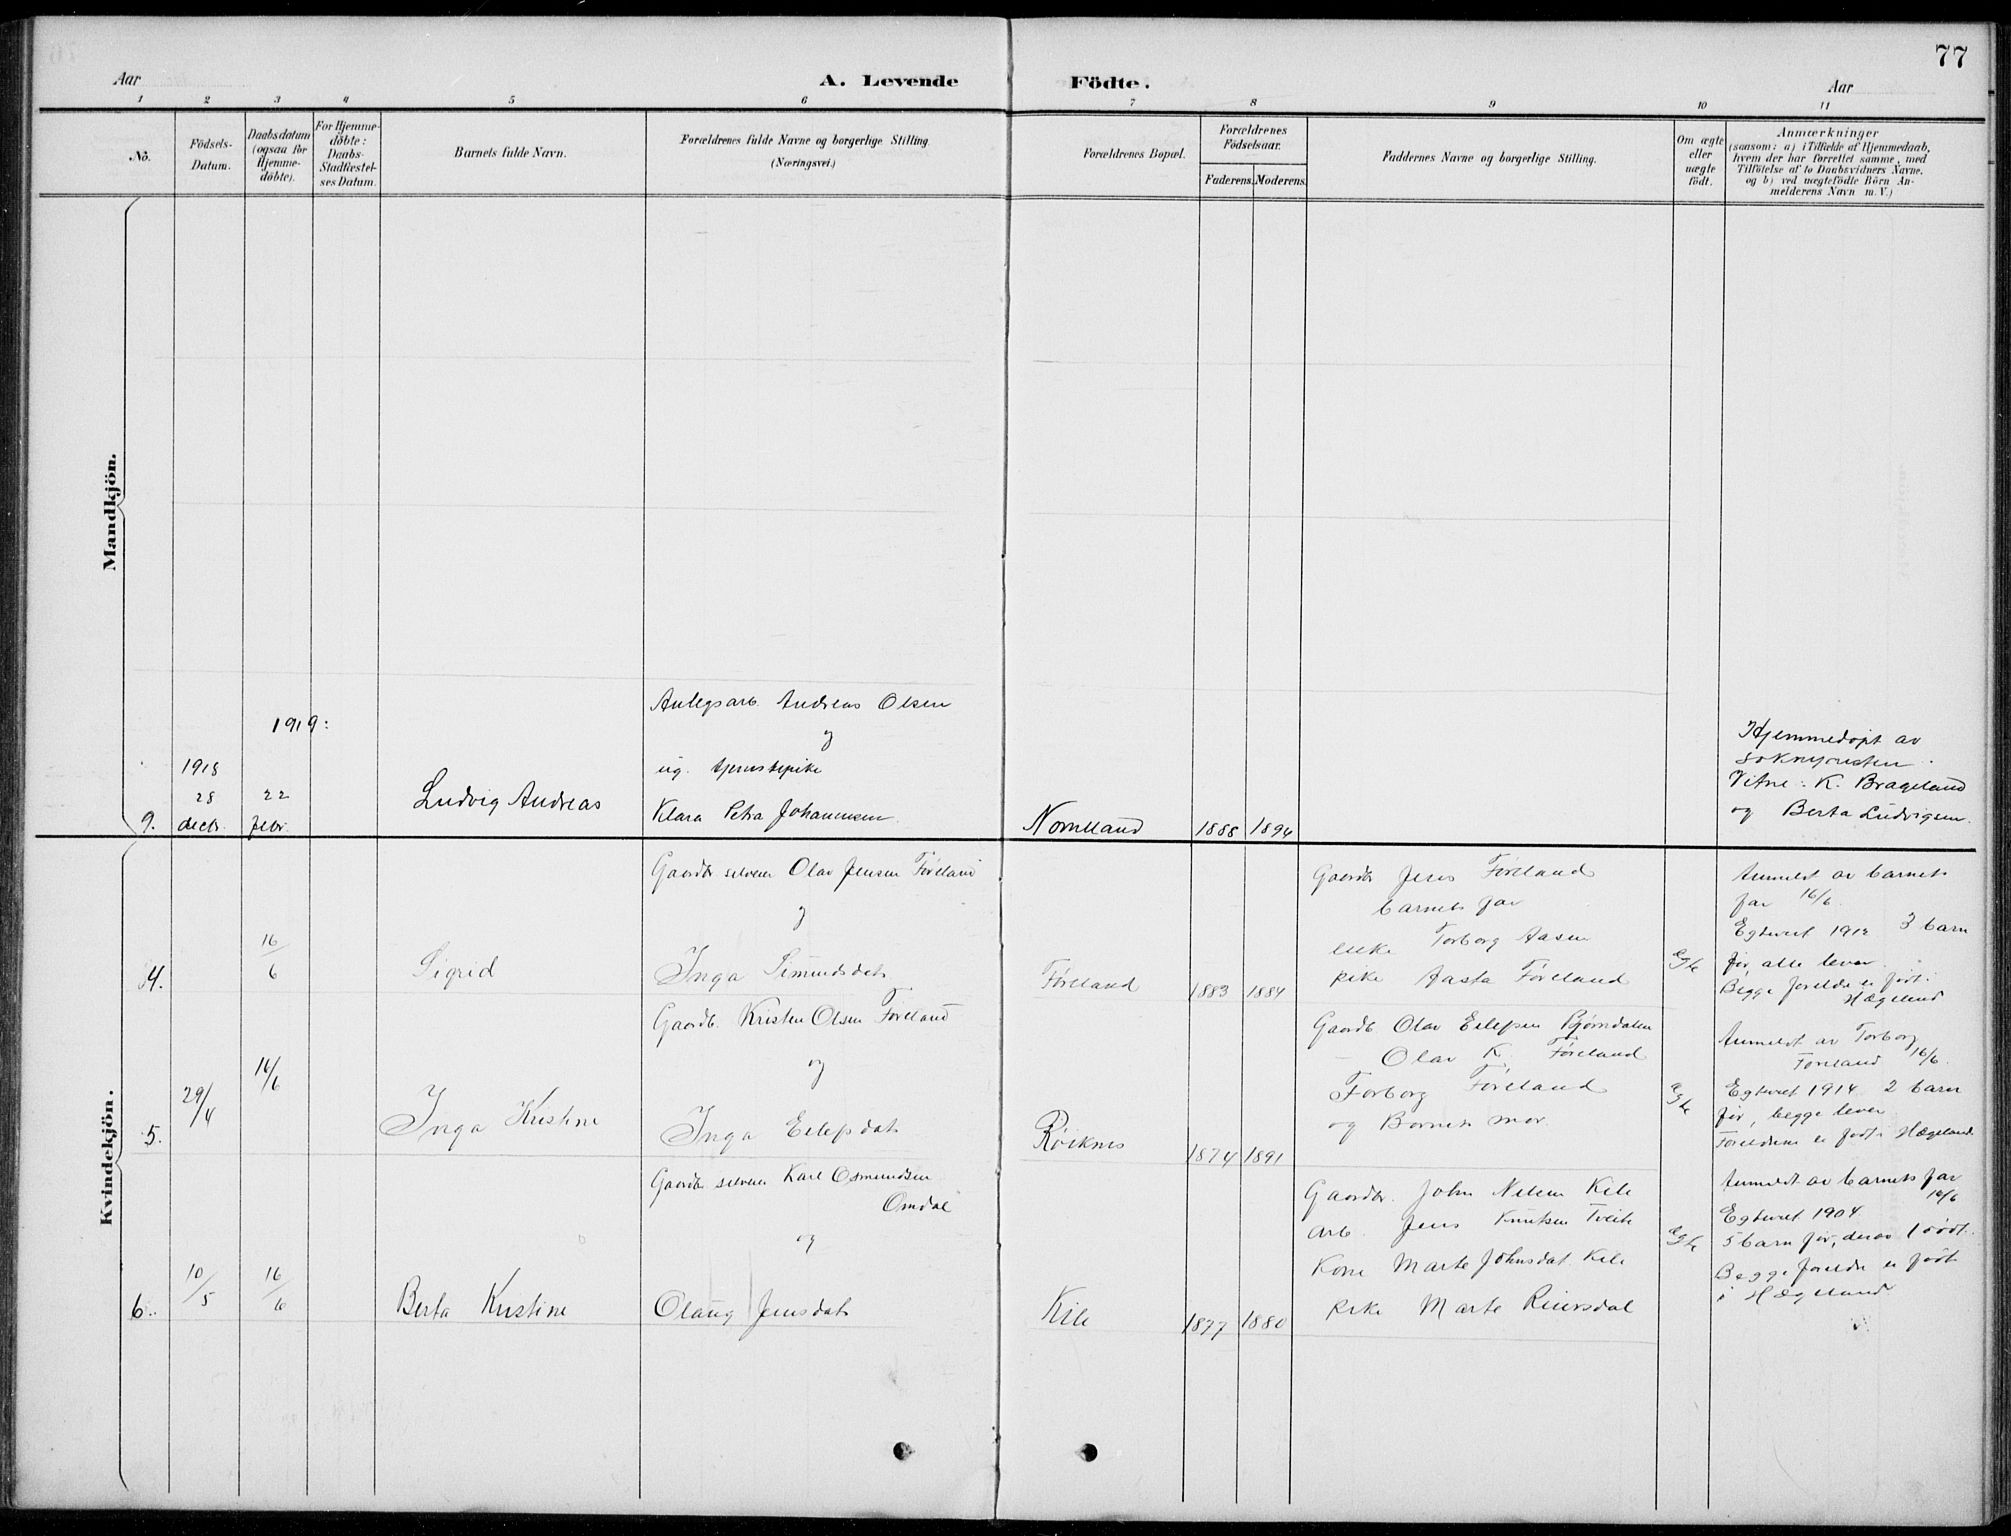 77
Aar
A. Levende Födte.
Aar
1 2 3 4 5 6 7 8 9 10 11
No.
Födsels-
Datum.
Daabsdatum
(ogsaa for
Hjemme-
döbte).
For Hjemme-
döbte:
Daabs-
Stadfæstel-
ses Datum.
Barnets fulde Navn.
Forældrenes fulde Navne og borgerlige Stilling
(Næringsvei.)
Forældrenes Bopæl.
Forældrenes
Födselsaar.
Faderens. Moderens.
Faddernes Navne og borgerlige Stilling.
Om ægte
eller
uægte
födt.
Anmærkninger
(saasom: a) i Tilfælde af Hjemmedaab,
hvem der har forrettet samme, med
Tilföielse af to Daabsvidners Navne,
og b) ved uægtefödte Börn An-
melderens Navn m. V.)
Mandkjön.
9.
1918
28
decbr.
1919:
22
febr.
Ludvig Andreas
Anlegsarb. Andreas Olsen
og
ug. tjenestepike
Klara Petra Johannesen
Nomeland
1888 1894
Hjemmedøpt av
soknepresten.
Vitne: K. Brageland
og Berta Ludvigsen.
Kvindekjön.
4.
16/6
Sigrid
Gaardbr selveier Olav Jensen Føreland
og
Inga Simundsdat.
Føreland
1883 1884
Gaardbr Jens Føreland
barnets far
enke Torborg Aasen
pike Aasta Føreland
egte
Anmeldt av barnets
far 16/6.
Egteviet 1912 3 barn
før, alle lever.
Begge foreldre er født i
Hægeland
5.
29/4
16/6
Inga Kristine
Gaardb. Kristen Olsen Føreland
og
Inga Eilefsdat.
Røiknes
1874 1891
Gaardb Olav Eilefsen Bjørndalen
— Olav K. Føreland
Torborg Føreland
og Barnets mor
egte
Anmeldt av Torborg
Føreland 16/6.
Egteviet 1914 2 barn
før, begge lever
Foreldrene er født i Hægeland.
6.
10/5
16/6
Berta Kristine
Gaardbr selveier Karl Osmundsen
Omdal
og
Olaug Jensdat.
Kile
1877 1880
Gaardbr. John Nilsen Kile
Arb. Jens Knutsen Tveite
Kone Marte Johnsdat. Kile
pike Marte Reiersdal
egte
Anmeldt av barnets far
16/6
Egteviet 1904.
5 barn før, derav 1 død.
Begge foreldre er født
i Hægeland